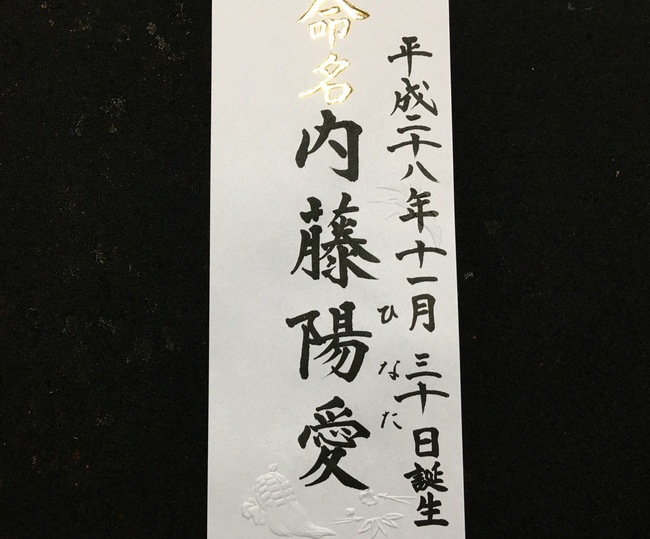 平成二十八年十一月三十日誕生
命名
内藤陽愛
ひなた